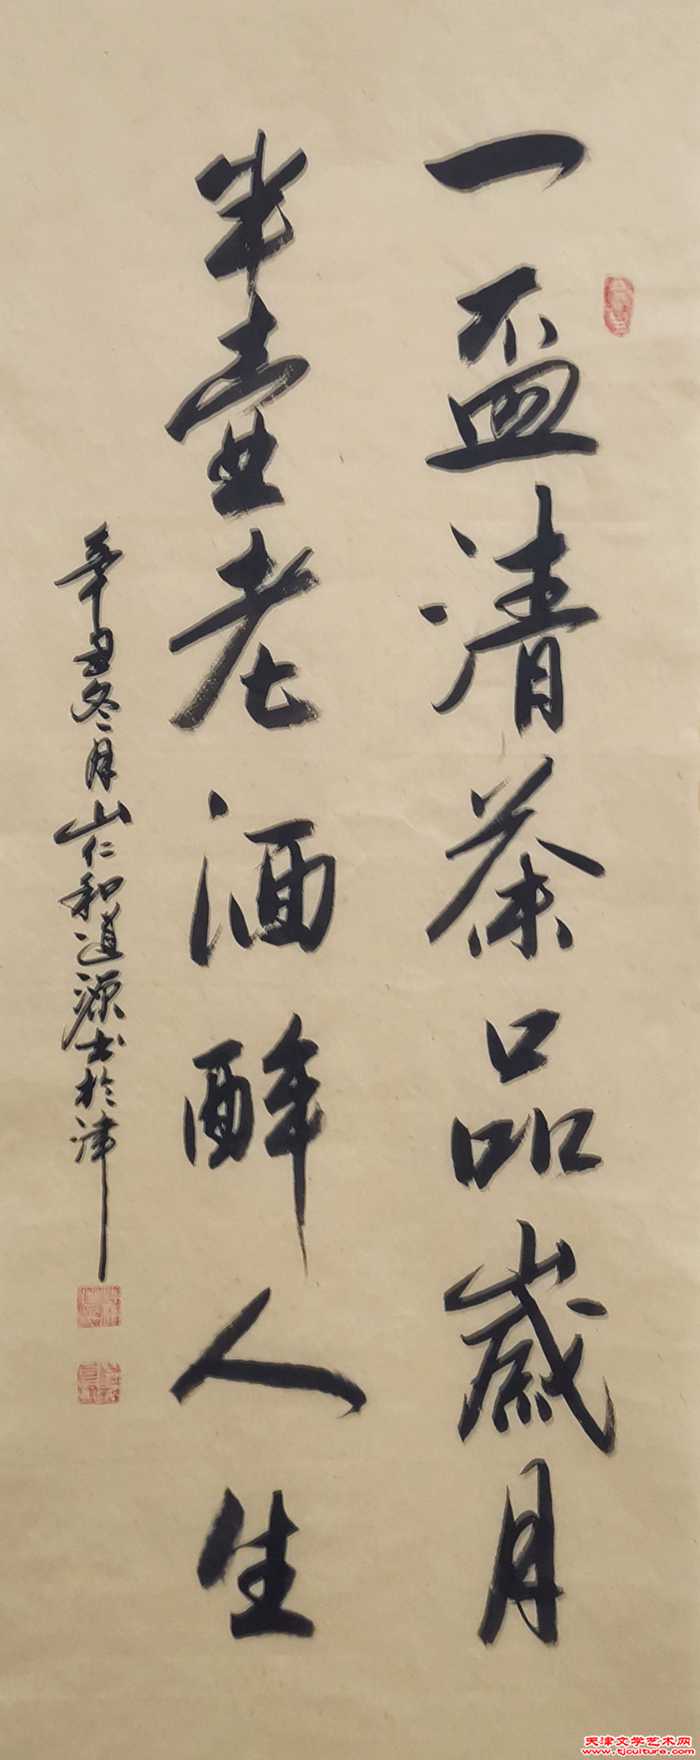 一盃清茶品歲月
半壺老酒醉人生
辛丑冬月山仁和道源书於津
天津文学艺术网
www.tjculture.com